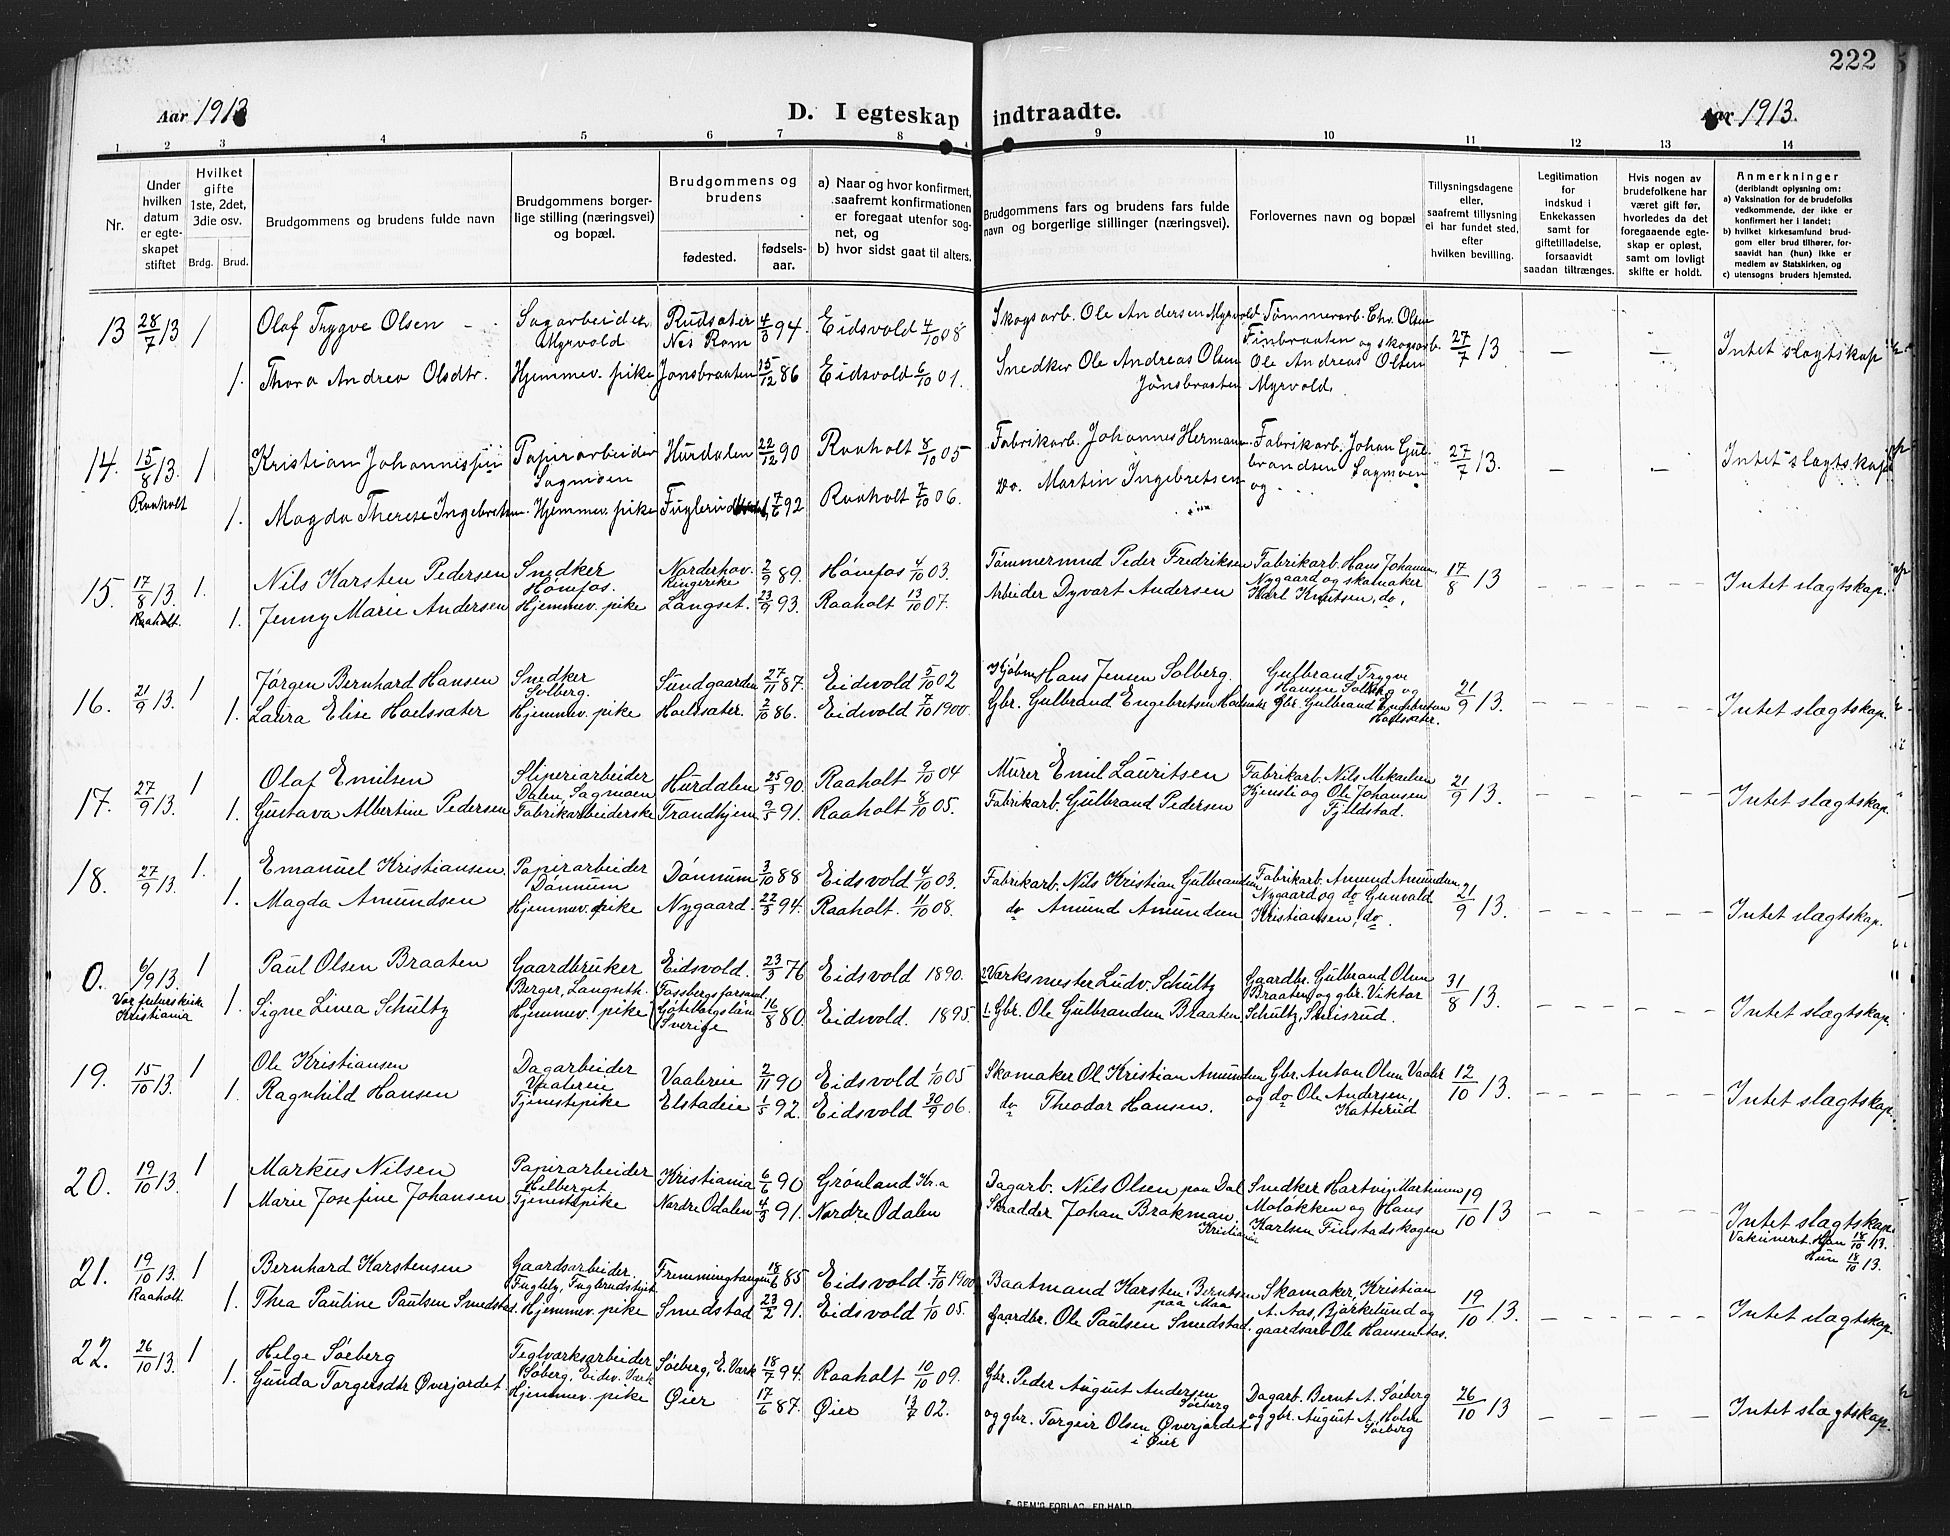 222
Aar 1913
D. I egteskap indtraadte.
Aar 1913.
1 2 3 4 5 6 7 8 9 10 11 12 13 14
Nr.
Under hvilken datum er egteskapet stiftet
Hvilket gifte 1ste, 2det, 3die osv.
Brdg. Brud.
Brudgommens og brudens fulde navn
Brudgommens borgerlige stilling (næringsvei) og bopæl.
Brudgommens og brudens
fødested.
fødselsaar.
a) Naar og hvor konfirmert, saafremt konfirmationen er foregaat utenfor sognet, og
b) hvor sidst gaat til alters.
Brudgommens fars og brudens fars fulde navn og borgerlige stillinger (næringsvei).
Forlovernes navn og bopæl
Tillysningsdagene eller, saafremt tillysning ei har fundet sted, efter hvilken bevilling.
Legitimation for indskud i Enkekassen samt for giftetilladelse, forsaavidt saadan tiltrænges.
Hvis nogen av brudefolkene har været gift før, hvorledes da det foregaaende egteskap er opløst, samt om lovligt skifte er holdt.
Anmerkninger
(deriblandt oplysning om:
a) Vaksination for de brudefolks vedkommende, der ikke er konfirmert her i landet;
b) hvilket kirkesamfund brudgom eller brud tilhører, forsaavidt han (hun) ikke er medlem av Statskirken, og
c) utensogns bruders hjemsted.
13 28/7 13 1 Olaf Trygve Olsen Sagarbeider Myrvold Rudsater Nes Rom 4/3 94 Eidsvold 4/10 08 Skogsarb. Ole Andersen Myrvold Tømmerarb. Chr. Olsen Finbraaten og skogsarb. 27/7 13 — — Intet slagtskap
1. Thora Andrea Olsdtr. Hjemmev. pike Jønsbraaten 15/12 86 Eidsvold 6/10 01. Snedker Ole Andreas Olsen Jønsbraaten Ole Andreas Olsen Myrvold.
14. 15/8 13. Raaholt 1 Kristian Johannessen Papirarbeider Sagmoen Hurdalen 22/12 90 Raaholt 8/10 05 Fabrikarb. Johannes Herman Fabrikarb. Johan Gulbrandsen Sagmoen 27/7 13. — — Intet slagtskap
1. Magda Therese Ingebretsen Hjemmev. pike 7/6 92 Raaholt 7/10 06. Do. Martin Ingebretsen og
15. 17/8 13. Raaholt. 1. Nils Karsten Pedersen Snedker Hønefos. Norderhov Ringerike 2/9 89. Hønefos 4/10 03. Tømmermnd Peder Fredriksen Fabrikarb. Hans Johansen, Nygaard og skomaker 17/8 13 Intet slagtskap.
1. Jenny Marie Andersen Hjemmev. pike Langset. 23/9 93. Raaholt 13/10 07. Arbeider Dyvart Andersen Karl Knutsen, do.
16. 21/9 13. 1 Jørgen Bernhard Hansen Snedker Solberg. Sundgaarden 27/11 87. Eidsvold 5/10 02 Kjøbm Hans Jensen Solberg. Gulbrand Trygve Hansen Solberg og 21/9 13. Intet slagtskap.
1. Laura Elise Hoelssæter Hjemmev. pike Hoelssæter. 2/10 86. Eidsvold 7/10 1900. Gbr. Gulbrand Engebretsen Gbr. Gulbrand Engebretsen Hoelssæter.
17. 27/9 13. 1 Olaf Emilsen Sliperiarbeider Dalen, Sagmoen Hurdalen 25/3 90. Raaholt 9/10 04 Murer Emil Lauritsen Fabrikarb. Nils Mikaelsen 21/9 13. Intet slagtskap.
1. Gustava Albertine Pedersen Fabrikarbeiderske Trondhjem 9/3 91. Raaholt 8/10 05. Fabrikarb. Gulbrand Pedersen og Ole Johansen Fjeldstad.
18. 27/9 13. 1. Emanuel Kristiansen. Papirarbeider Dønnum Dønnum 3/10 88 Eidsvold 4/10 03. Fabrikarb. Nils Kristian Gulbrandsen Fabrikarb. Amund Amundsen Nygaard og do Gunvald 21/9 13. Intet slagtskap.
1. Magda Amundsen Hjemmev. pike Nygaard. 22/3 94. Raaholt. 11/10 08. do Amund Amundsen Kristiansen, do.
0. 6/9 13. Vor frelsers kirke Kristiania 1 Paul Olsen Braaten Gaardbruker Berger, Langseth. Eidsvold. 23/3 76 Eidsvold 1890. 2. Værksmester Ludv. Schultz Gaardbr. Gulbrand Olsen Braaten og gbr. Viktor 31/8 13. Intet slagtskap.
1. Signe Linea Schultz Hjemmev. pike Fossbergs forsaml. Göteborgs län Sverige 16/8 80. Eidsvold. 1895. 1. Gbr. Ole Gulbrandsen Braaten. Schultz,
19. 15/10 13. 1 Ole Kristiansen Dagarbeider Vaalereie Vaalereie 2/11 90 Eidsvold 1/10 05 Skomaker Ol Kristian Amundsen Gbr. Anton Olsen Vaaler 12/10 13. Intet slagtskap.
1. Ragnhild Hansen Tjenestepike Elstadeie 1/5 92. Eidsvold 30/9 06. do Theodor Hansen. og do Ole Andersen, Katterud
20. 19/10 13. 1 Markus Nilsen Papirarbeider Helberget Kristiania 6/6 90 Grønland Kr.a Dagarb. Nils Olsen paa Dal Snedker Hartvig Martinsen Moløkken og Hans 19/10 13 Intet slagtskap.
1 Marie Josefine Johansen Tjenestepike Nordre Odalen 4/3 91. Nordre Odalen Skrædder Johan Brakman Kristiania Karlsen Finstadskogen Vakcineret. Han 18/10 13. Hun 18/10 13.
21. 19/10 13. Raaholt 1 Bernhard Karstensen Gaardsarbeider 18/6 85 Eidsvold 7/10 1900 Baatmand Karsten Berntsen paa Maa Skomaker, Kristian A. Aas, Bjørkelund og 19/10 13. Intet slagtskap.
1. Thea Pauline Paulsen Smedstad. Hjemmev. pike Smedstad 23/2 91. Eidsvold 1/10 05. Gaardbr. Ole Paulsen Smedstad. gaardsarb. Ole Hansen Aas.
22. 26/10 13. 1 Helge Søeberg Teglværksarbeider Søberg, Eidsv. Værk Søeberg, E. Værk 18/7 94. Raaholt 10/10 09. Gbr. Peder August Andersen Søeberg Dagarb. Bernt A. Søeberg 26/10 13 Intet slagtskap.
1. Gunda Torgersdtr Øverjordet. Hjemmev. pike Øier 17/6 87. Øier 13/7 02. og gbr. Torgeir Olsen Øverjordet i Øier og gbr. August A. Holm Søeberg